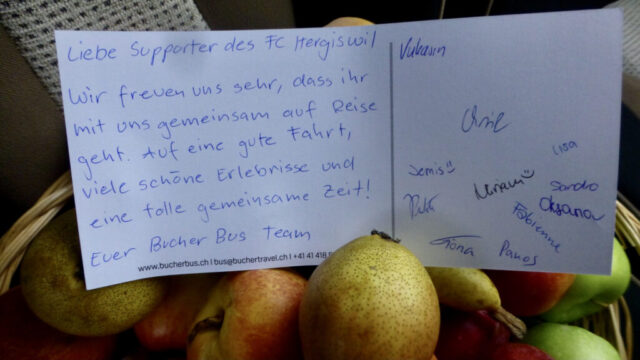 Liebe Supporter des FC Hergiswil
Wir freuen uns sehr, dass ihr
mit uns gemeinsam auf Reise
geht. Auf eine gute Fahrt,
viele schöne Erlebnisse und
eine tolle gemeinsame Zeit!
Euer Bucher Bus Team
www.bucherbus.ch | bus@buchertravel.ch | +41 41 418
Vukasin
Lisa
Jemis
Miriam
Sandro
Oksana
Fabienne
Fiona
Panos